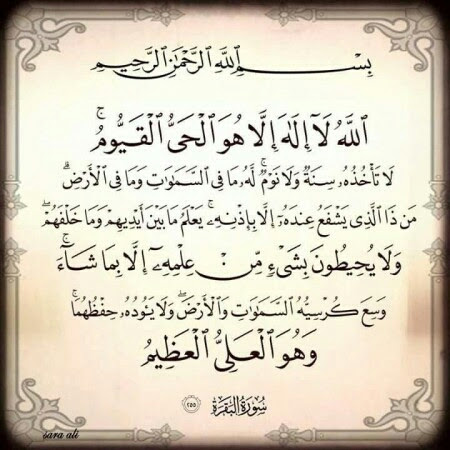 بِسْمِ ٱللَّهِ ٱلرَّحْمَٰنِ ٱلرَّحِيمِ
ٱللَّهُ لَآ إِلَٰهَ إِلَّا هُوَ ٱلْحَىُّ ٱلْقَيُّومُ ۚ
لَا تَأْخُذُهُۥ سِنَةٌ وَلَا نَوْمٌ ۚ لَّهُۥ مَا فِى ٱلسَّمَٰوَٰتِ وَمَا فِى ٱلْأَرْضِ ۗ
مَن ذَا ٱلَّذِى يَشْفَعُ عِندَهُۥٓ إِلَّا بِإِذْنِهِۦ ۚ يَعْلَمُ مَا بَيْنَ أَيْدِيهِمْ وَمَا خَلْفَهُمْ ۖ
وَلَا يُحِيطُونَ بِشَىْءٍ مِّنْ عِلْمِهِۦٓ إِلَّا بِمَا شَآءَ ۚ
وَسِعَ كُرْسِيُّهُ ٱلسَّمَٰوَٰتِ وَٱلْأَرْضَ ۖ وَلَا يَـُٔودُهُۥ حِفْظُهُمَا ۚ
وَهُوَ ٱلْعَلِىُّ ٱلْعَظِيمُ
سُورَةُ البَقَرَة ٢٥٥
sara ali